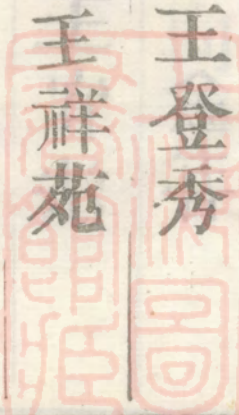 王登秀
王祥苑